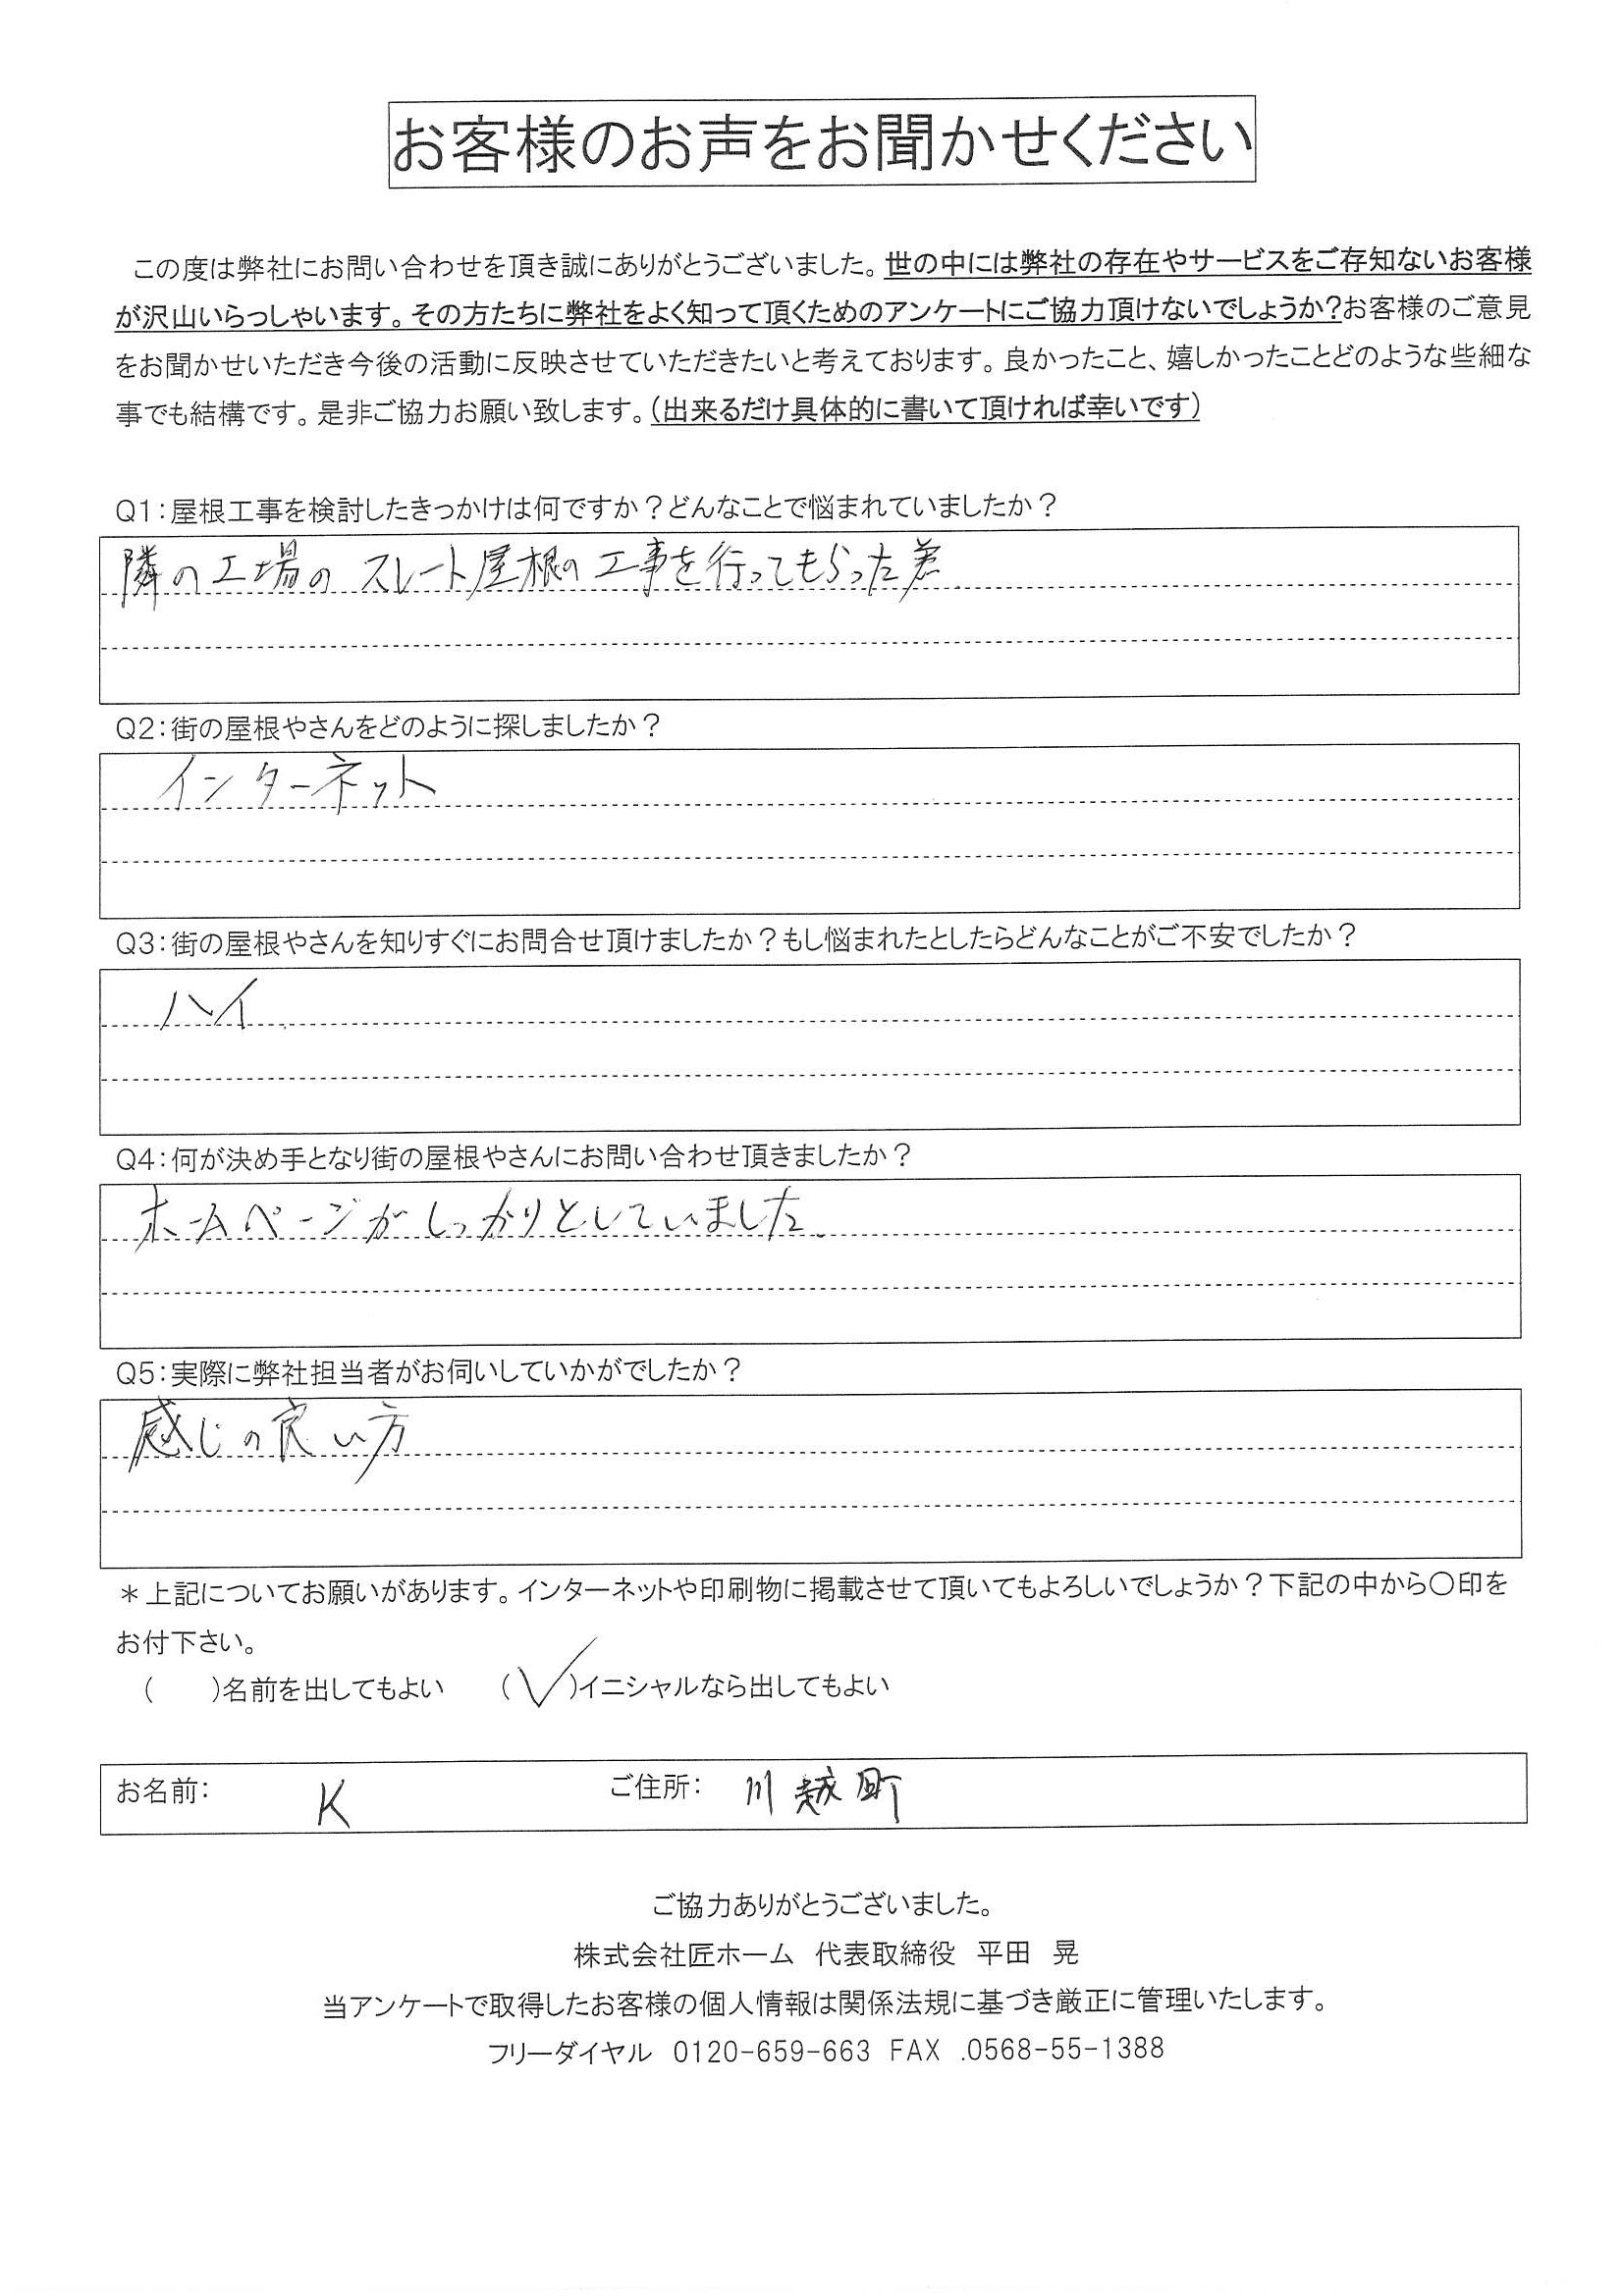 お客様のお声をお聞かせください
この度は弊社にお問い合わせを頂き誠にありがとうございました。世の中には弊社の存在やサービスをご存知ないお客様
が沢山いらっしゃいます。その方たちに弊社をよく知って頂くためのアンケートにご協力頂けないでしょうか?お客様のご意見
をお聞かせいただき今後の活動に反映させていただきたいと考えております。良かったこと、嬉しかったことどのような些細な
事でも結構です。是非ご協力お願い致します。(出来るだけ具体的に書いて頂ければ幸いです)
Q1:屋根工事を検討したきっかけは何ですか?どんなことで悩まれていましたか?
隣の工場のスレート屋根の工事を行ってもらった為
Q2:街の屋根やさんをどのように探しましたか?
インターネット
Q3:街の屋根やさんを知りすぐにお問合せ頂けましたか?もし悩まれたとしたらどんなことがご不安でしたか?
ハイ
Q4:何が決め手となり街の屋根やさんにお問い合わせ頂きましたか?
ホームページがしっかりとしていました。
Q5:実際に弊社担当者がお伺いしていかがでしたか?
感じの良い方
＊上記についてお願いがあります。インターネットや印刷物に掲載させて頂いてもよろしいでしょうか?下記の中から〇印を
お付下さい。
(　　)名前を出してもよい　(✓)イニシャルなら出してもよい
お名前: K ご住所: 川越町
ご協力ありがとうございました。
株式会社匠ホーム 代表取締役 平田 晃
当アンケートで取得したお客様の個人情報は関係法規に基づき厳正に管理いたします。
フリーダイヤル 0120-659-663 FAX .0568-55-1388